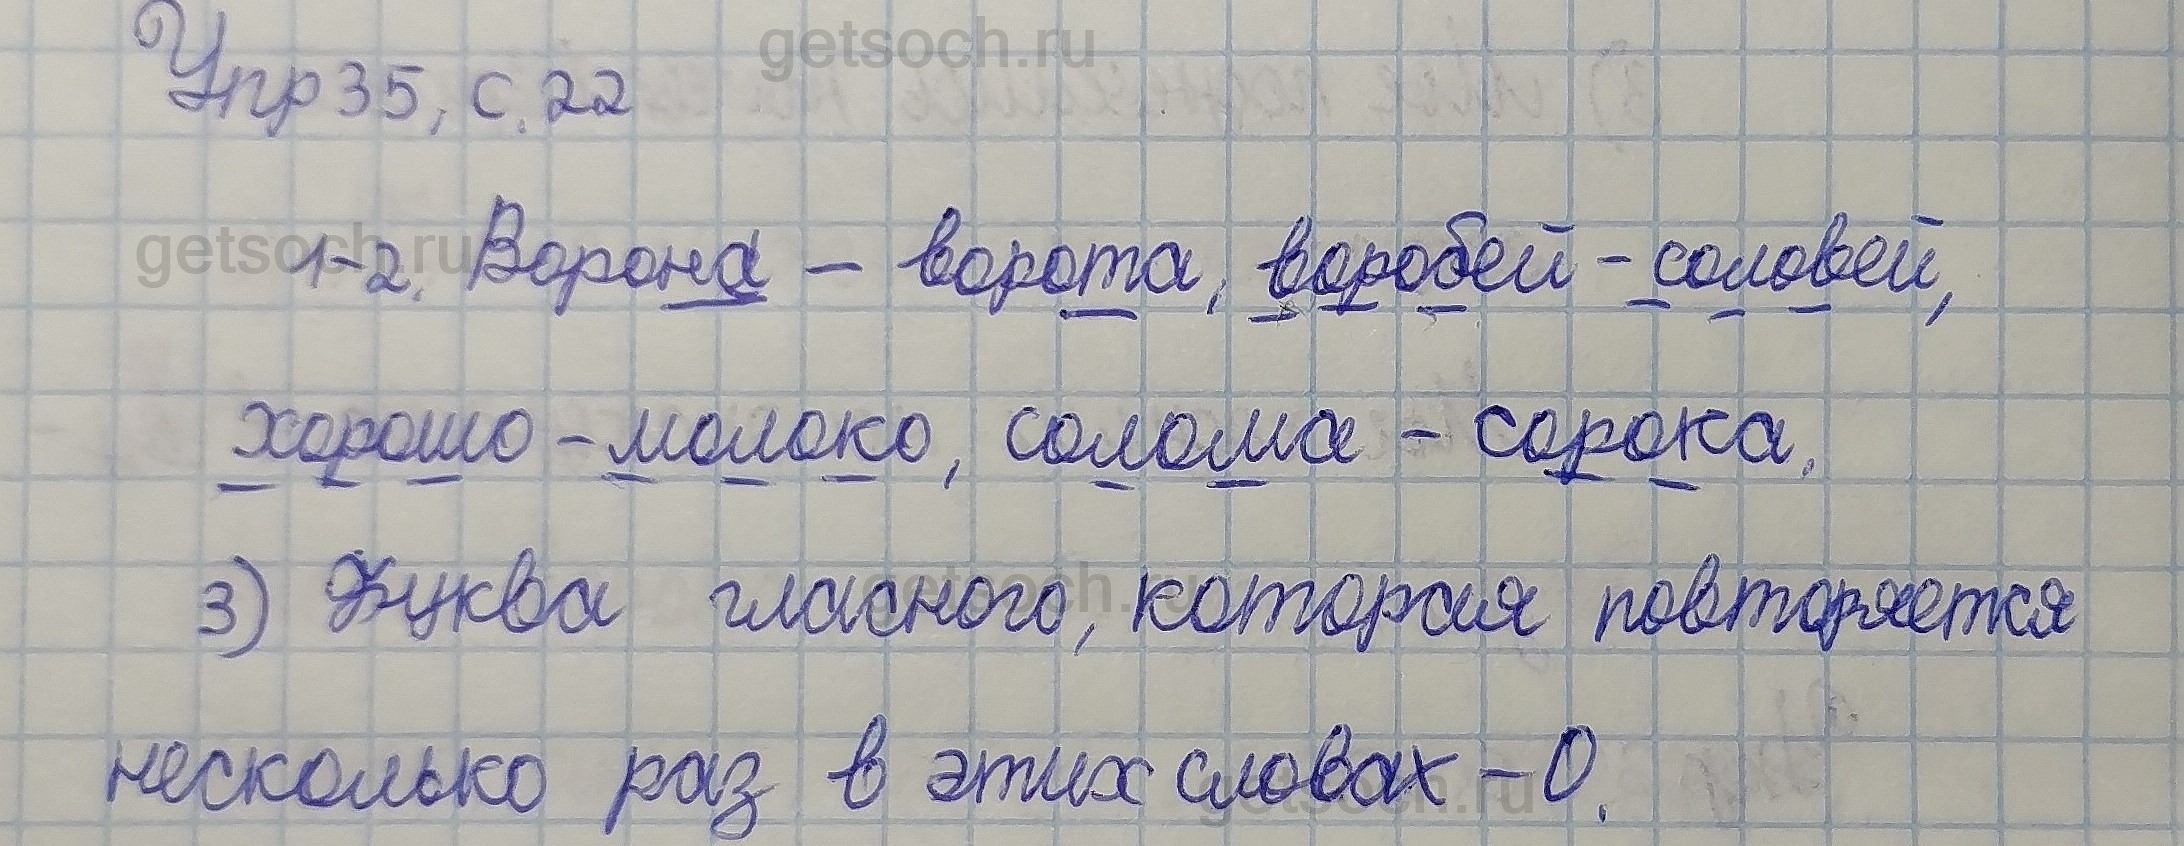 getsoch.ru
Упр 35, с. 22
getsoch.ru
1-2. Ворона – ворота, воробей – соловей,
хорошо – молоко, солома – сорока.
getsoch.ru
3) Буква гласного, которая повторяется
несколько раз в этих словах – О.
getsoch.ru